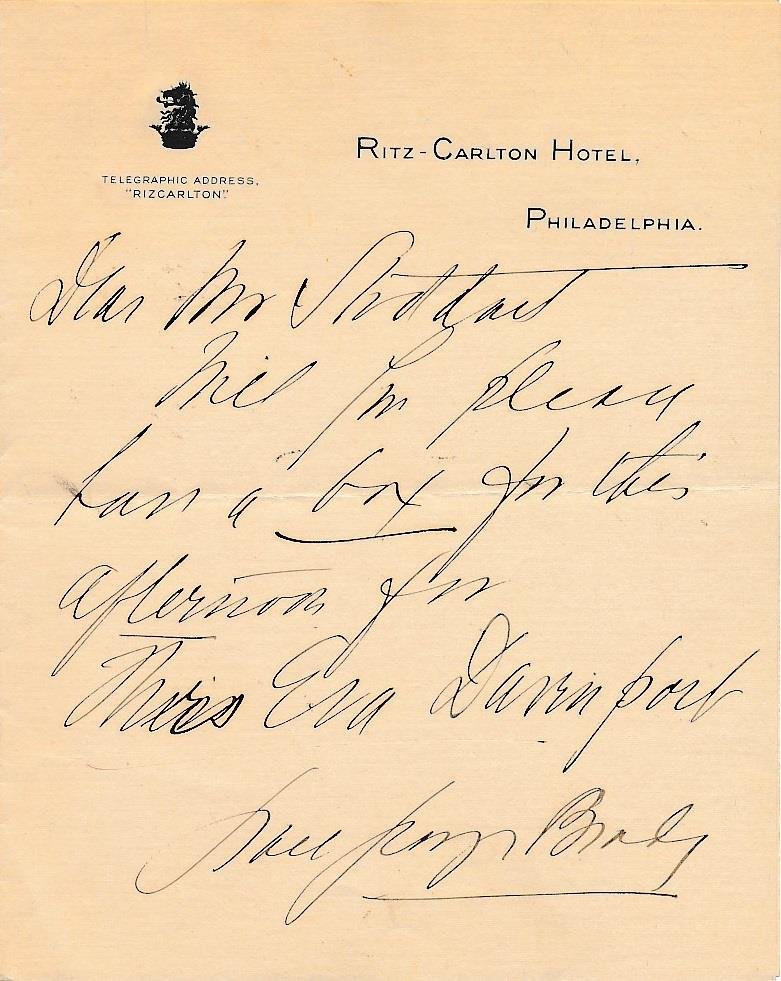 TELEGRAPHIC ADDRESS,
"RIZCARLTON".
RITZ-CARLTON HOTEL,
PHILADELPHIA.
Dear Mr Stoddart
Will you please
have a box for this
afternoon for
Miss Eva Davenport
Brady